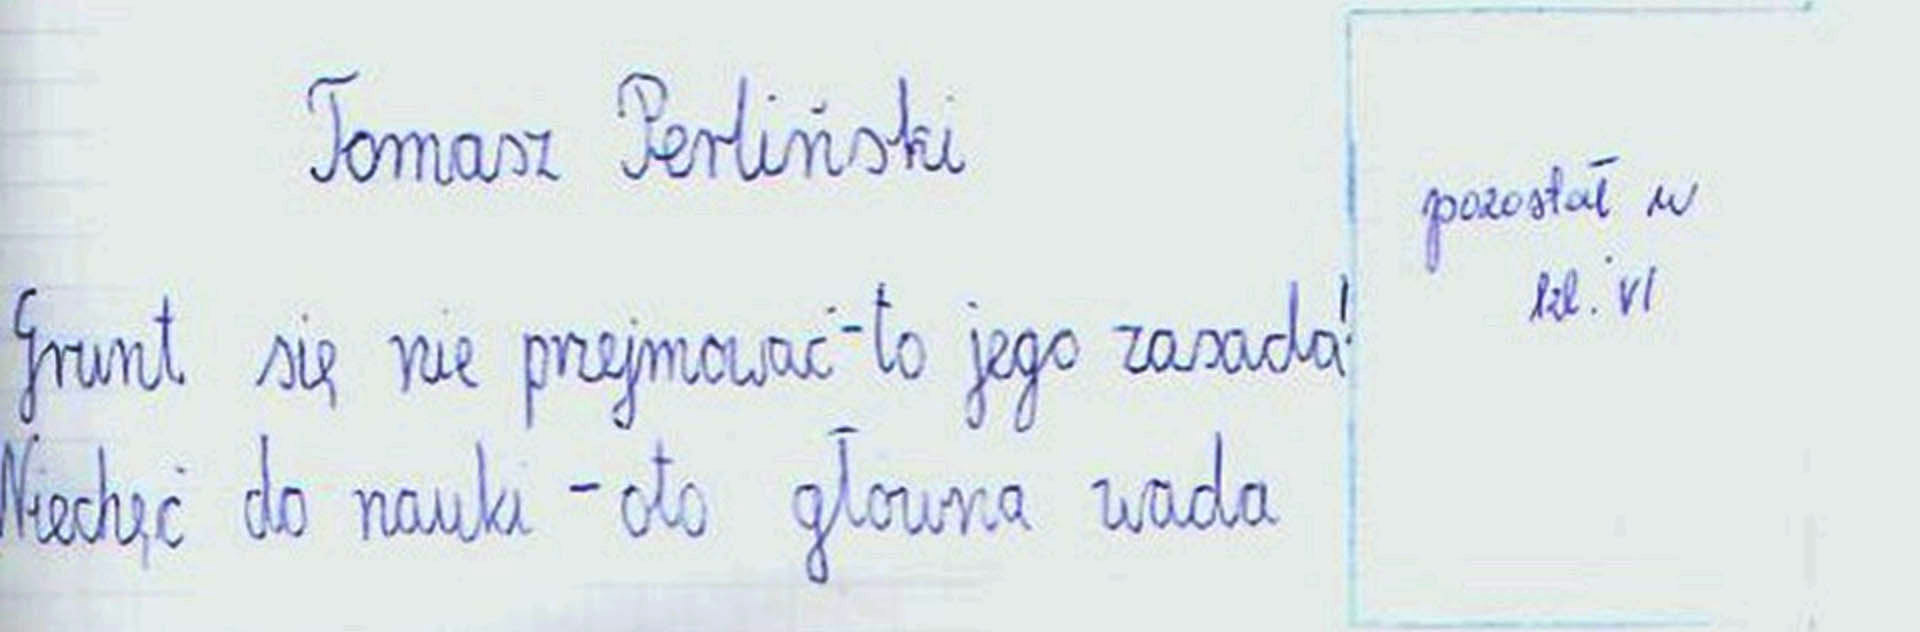 Tomasz Perliński
Grunt się nie przejmować - to jego zasada!
Niechęć do nauki - oto głowna wada
pozostał w
kl. VI